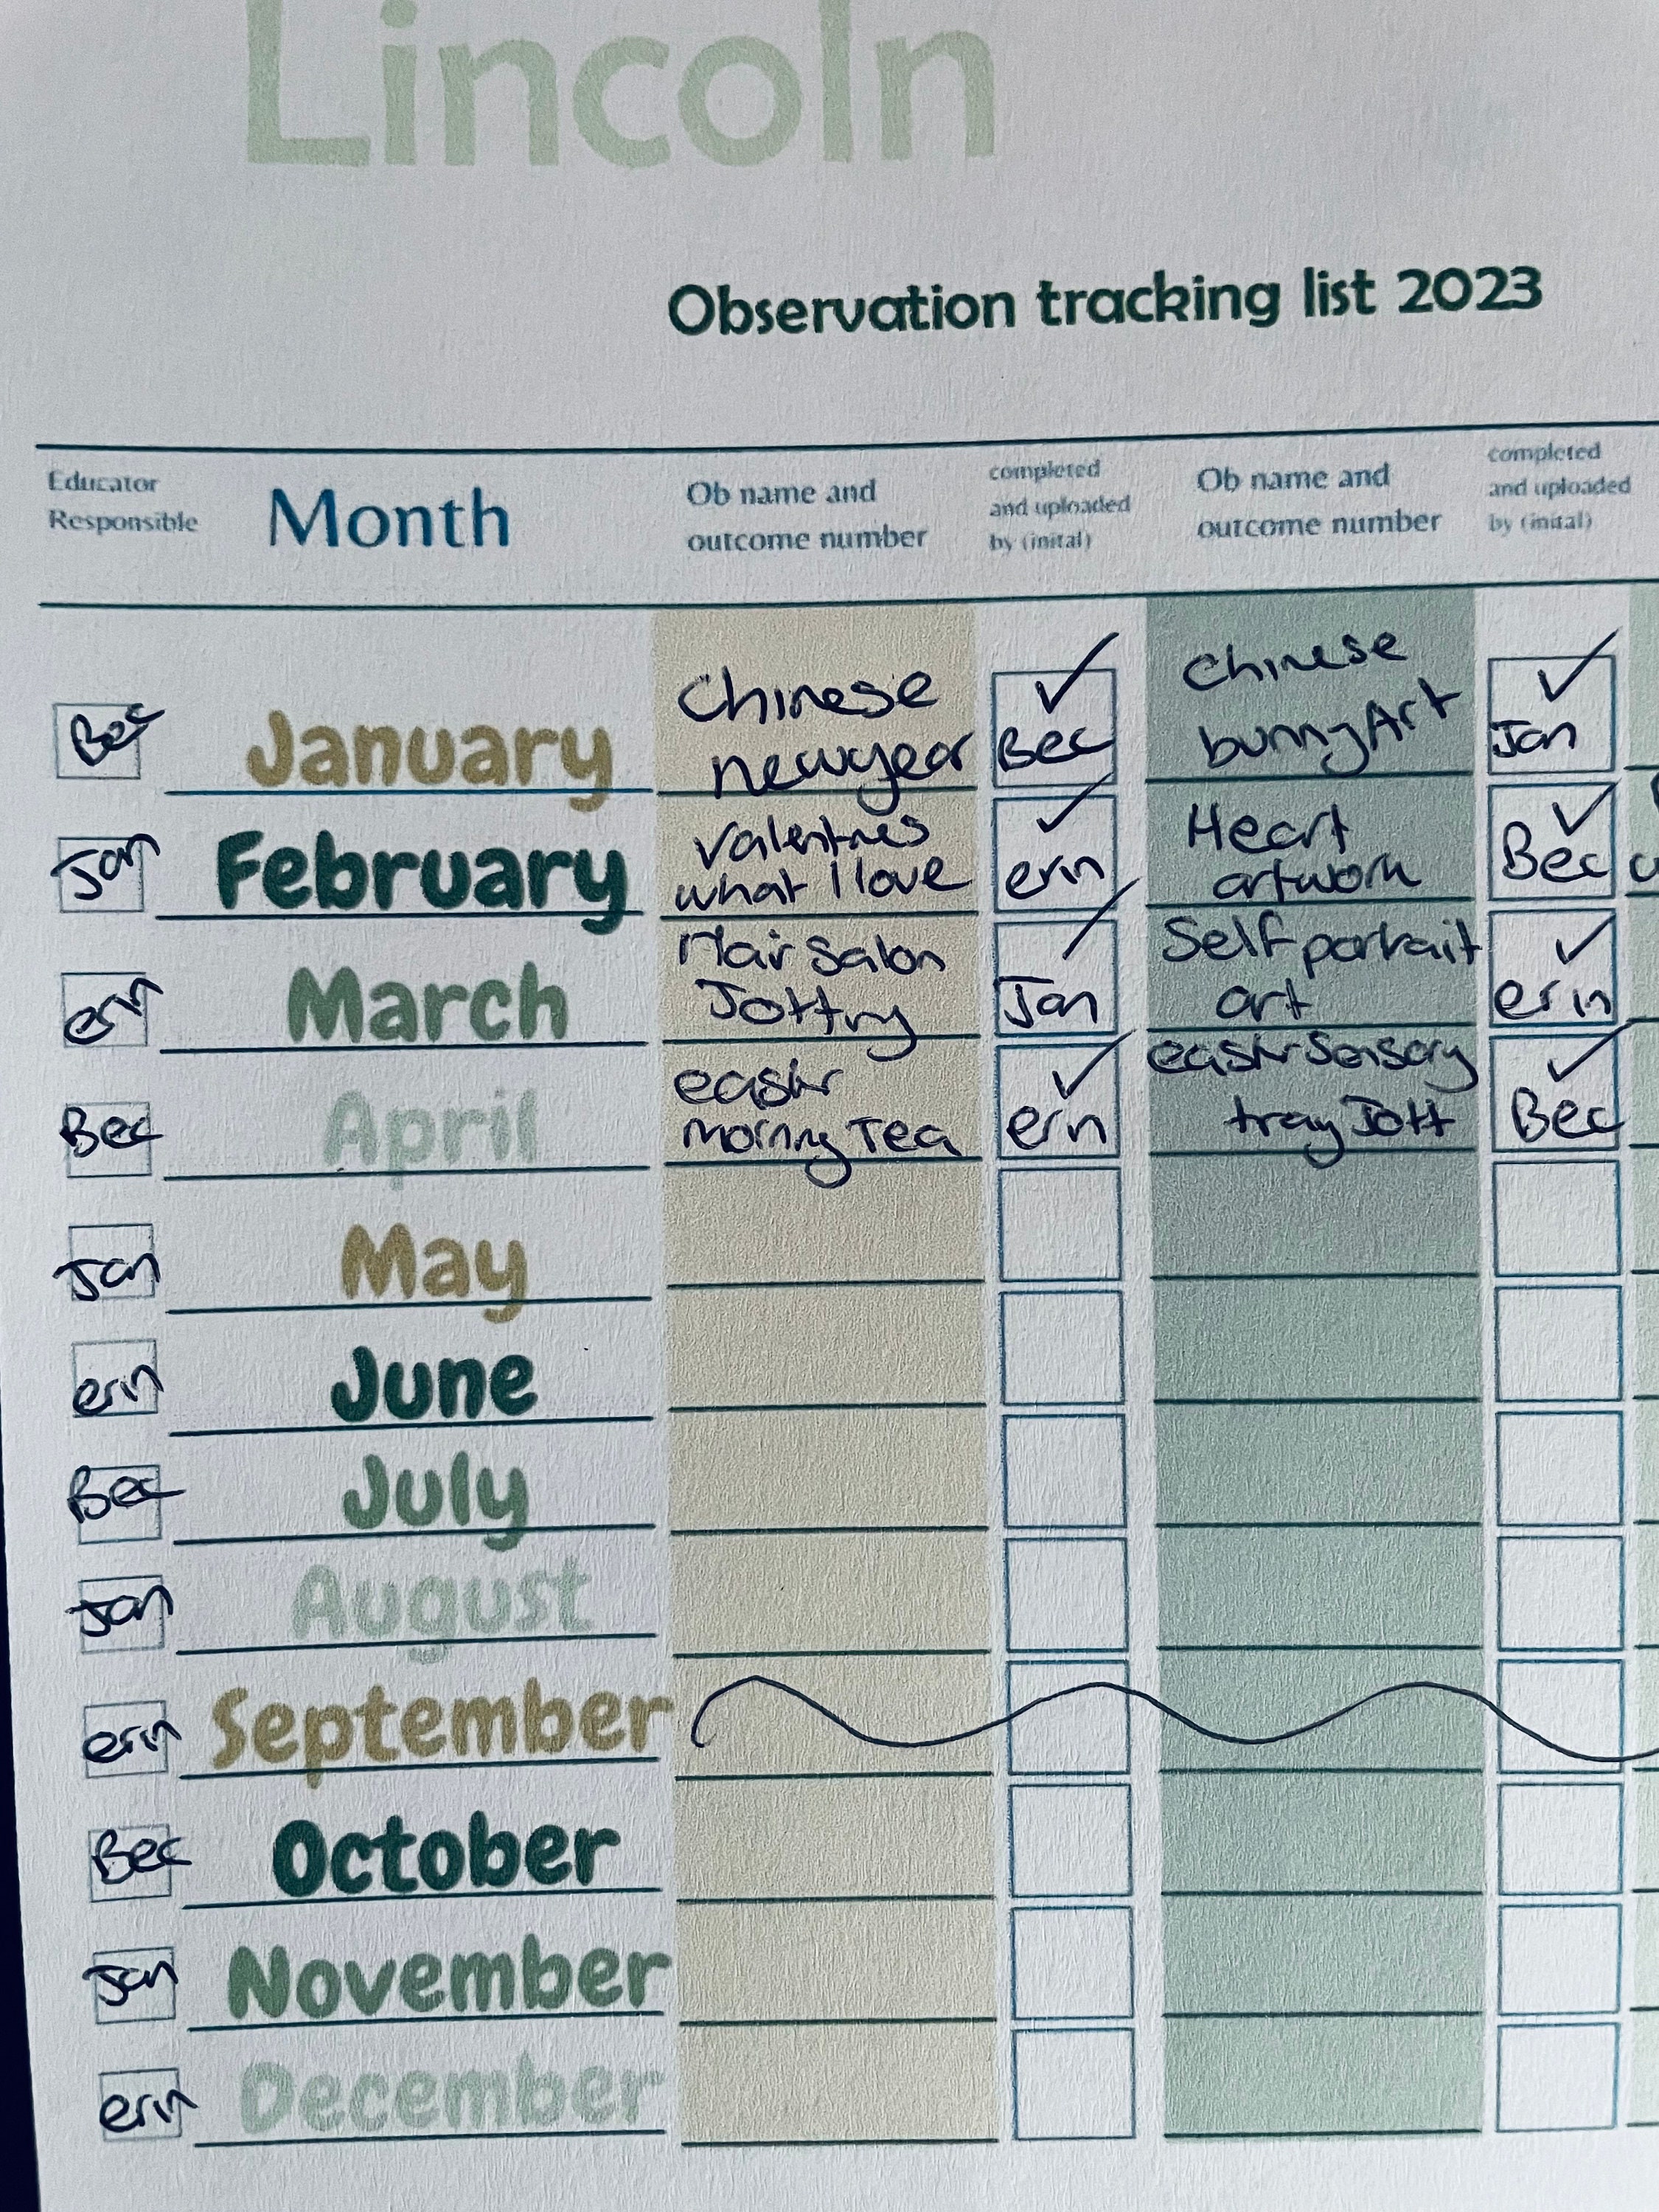 Lincoln
Observation tracking list 2023
Educator
Responsible
Month
Ob name and
outcome number
completed
and uploaded
by (inital)
Ob name and
outcome number
completed
and uploaded
by (inital)
Bec
January
Chinese
newyear
✓
Bec
Chinese
bunny Art
✓
Jan
Jan
February
Valentines
what I love
✓
erin
Heart
artwork
✓
Bec
erin
March
Hair Salon
Jotting
Jan
Self portrait
art
✓
erin
Bec
April
easter
morning Tea
✓
erin
easter Sensory
tray Jott
✓
Bec
Jan
May
erin
June
Bec
July
Jan
August
erin
September
Bec
October
Jan
November
erin
December